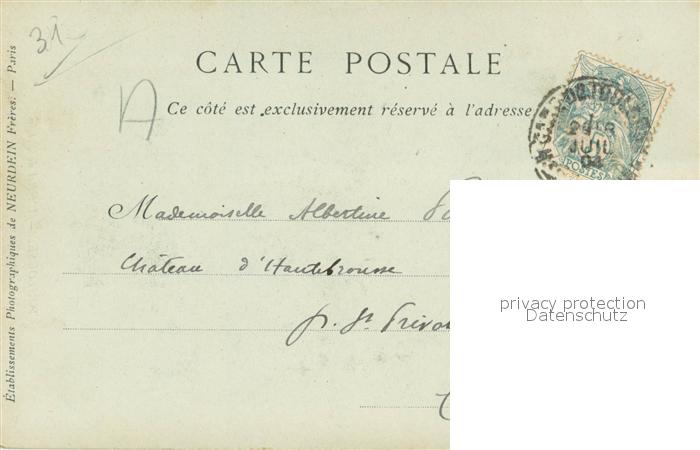 31
CARTE POSTALE
A
Ce côté est exclusivement réservé à l'adresse
Mademoiselle Albertine
Château d'Hautebrousse
p. St Priva
Établissements Photographiques de NEURDEIN Frères. — Paris
JUIL
04
POSTES
privacy protection
Datenschutz